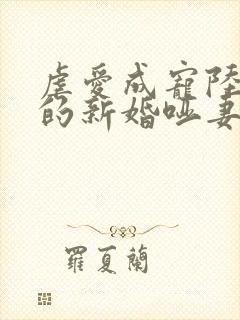 虐愛成寵陸
的新婚啞妻
羅夏蘭